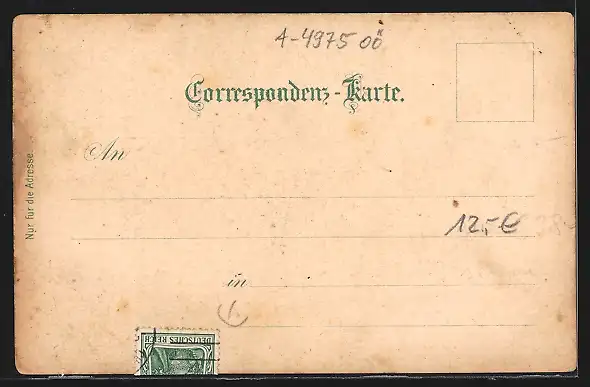 A-4975 OÖ
Correspondenz-Karte.
An
Nur für die Adresse.
12,- €
in
DEUTSCHES REICH